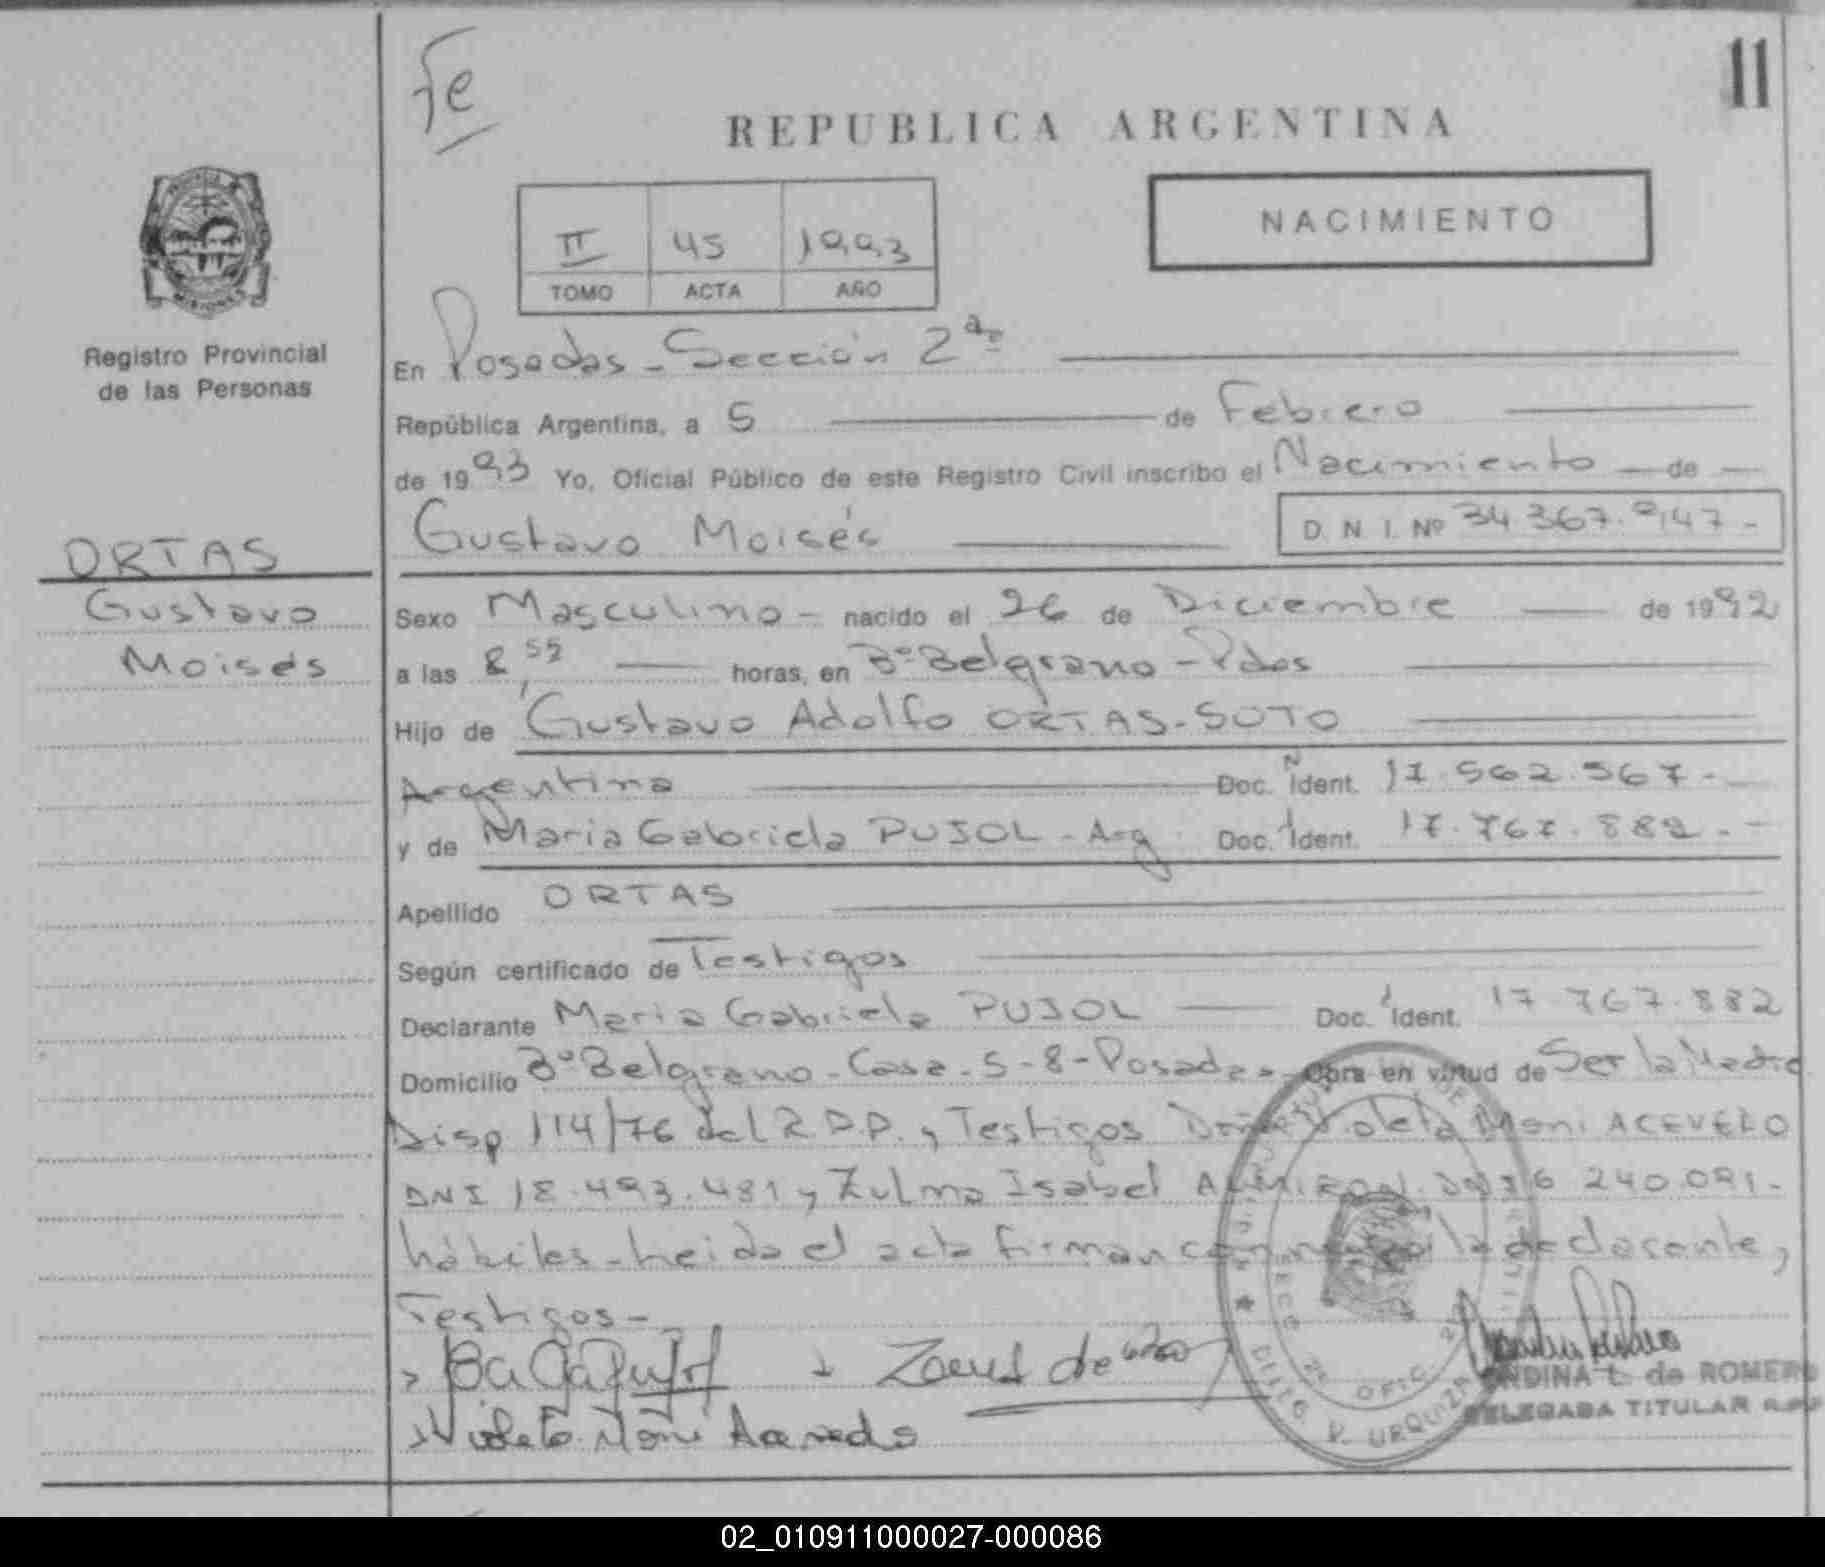 Fe
11
REPUBLICA ARGENTINA
NACIMIENTO
II 45 1993
TOMO ACTA AÑO
Registro Provincial
de las Personas
En Posadas - Sección 2ª
República Argentina, a 5 de Febrero
de 1993 Yo, Oficial Público de este Registro Civil inscribo el Nacimiento de
Gustavo Moisés D. N. I. Nº 34 367.947-
ORTAS
Gustavo
Moisés
Sexo Masculino - nacido el 26 de Diciembre de 1992
a las 8,55 horas, en Bº Belgrano - Pdas
Hijo de Gustavo Adolfo ORTAS-SOTO
Argentina Doc. Ident. 17.562.567-
y de Maria Gabriela PUJOL - Arg Doc. Ident. 17.767.882.-
Apellido ORTAS
Según certificado de Testigos
Declarante Maria Gabriela PUJOL Doc. Ident. 17 767.882
Domicilio Bº Belgrano - Casa - 5 - 8 - Posadas Obra en virtud de Ser la Madre
Disp 114/76 del R.P.P., Testigos Doña Violeta Moni ACEVEDO
DNI 18.493.481 y Zulma Isabel ALMIRON DNI 6 240.091-
hábiles - Leida el acta firman conmigo la declarante,
Testigos -
Violeta Moni Acevedo
de ROMERO
DELEGADA TITULAR R.P.P
DELEG V. URQUIZA
SECC 2ª OFIC. 2ª
MISIONES
02_010911000027-000086